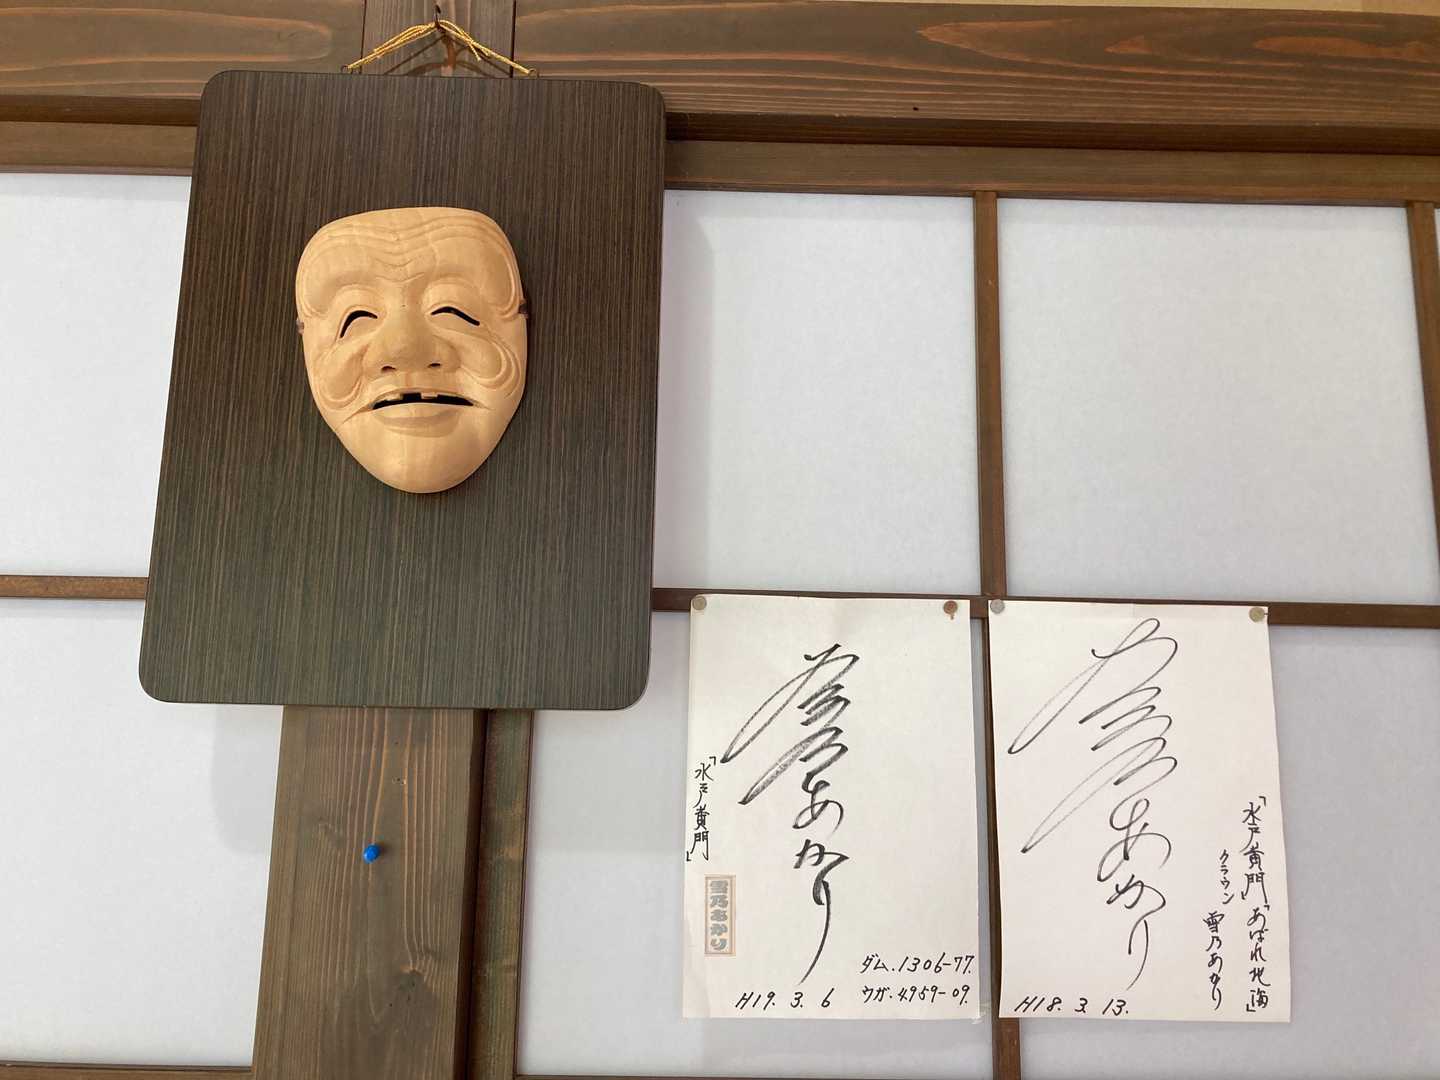 雪乃あかり
「水戸黄門」
雪乃あかり
ダム.1306-77.
ウガ.4959-09.
H19. 3. 6
雪乃あかり
「水戸黄門」「あばれ北海」
クラウン
雪乃あかり
H18. 3. 13.